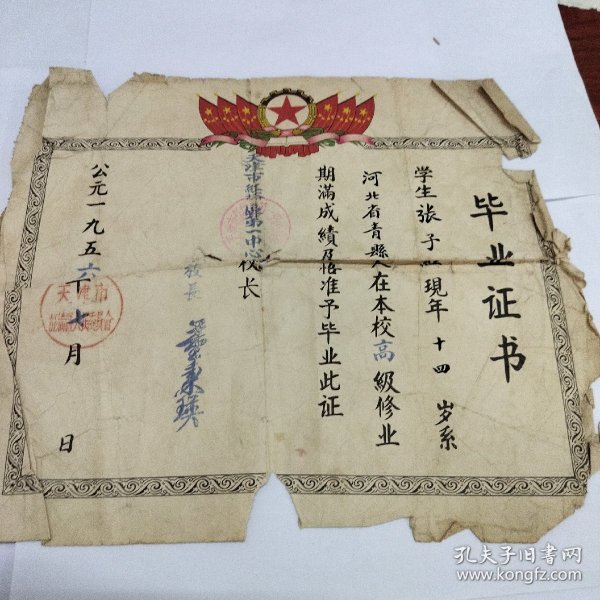 毕业证书
学生张子 現年十四岁系
河北省青縣人在本校高級修业
期满成績及格准予毕业此证
天津市 第一中心校长
校長 秉瑛
公元一九五六年七月 日
天津市
孔夫子旧书网
www.kongfz.com